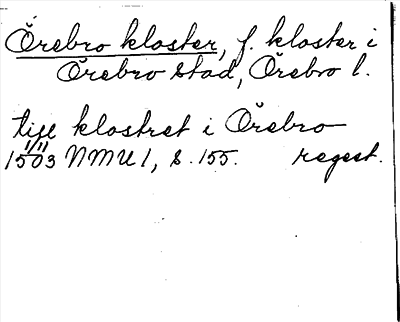 Örebro kloster, f. kloster i
Örebro stad, Örebro l.
till klostret i Örebro
1/11
1503 NMU 1, s. 155. regest.